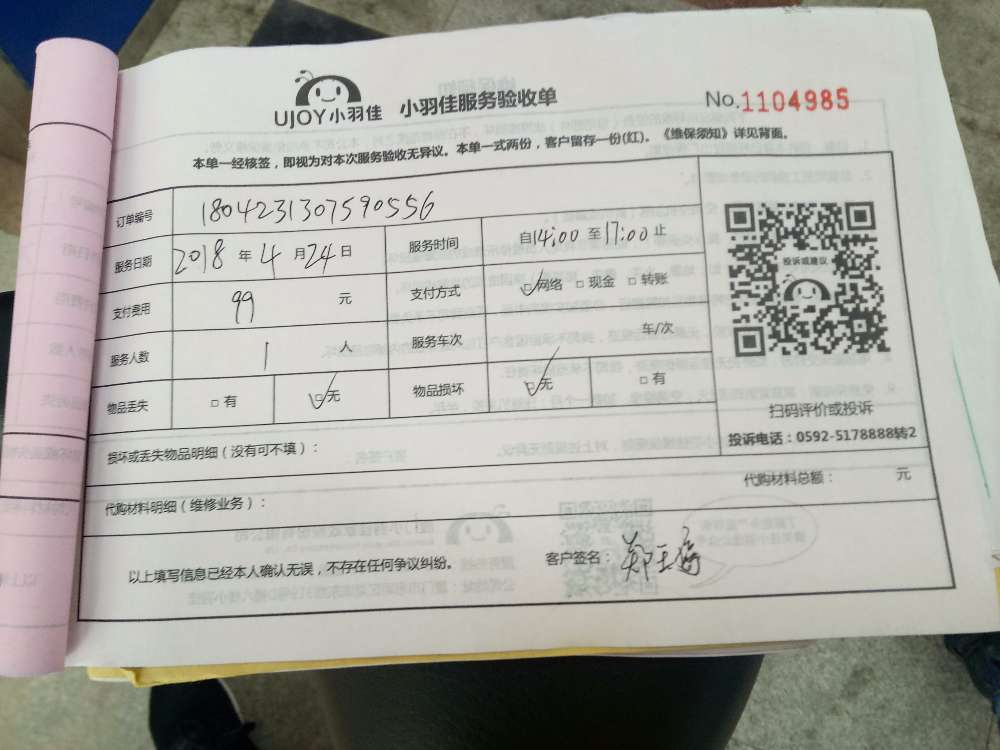 UJOY小羽佳 小羽佳服务验收单 No.1104985
本单一经核签，即视为对本次服务验收无异议。本单一式两份，客户留存一份(红)。《维保须知》详见背面。
订单编号 1804231307590556
服务日期 2018 年 4 月 24 日 服务时间 自14:00 至 17:00 止
支付费用 99 元 支付方式 ☑网络 □现金 □转账
服务人数 1 人 服务车次 车/次
物品丢失 □有 ☑无 物品损坏 ☑无 □有
投诉或建议
扫码评价或投诉
投诉电话：0592-5178888转2
损坏或丢失物品明细（没有可不填）：
代购材料明细（维修业务）： 代购材料总额： 元
以上填写信息已经本人确认无误，不存在任何争议纠纷。 客户签名：郑玉